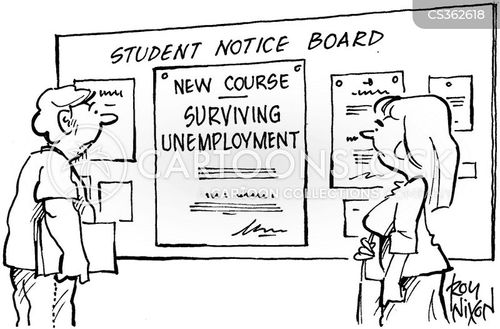 CS362618
STUDENT NOTICE BOARD
NEW COURSE
SURVIVING
UNEMPLOYMENT
CARTOONSTOCK
CARTOON COLLECTIONS
ROY
NIXON